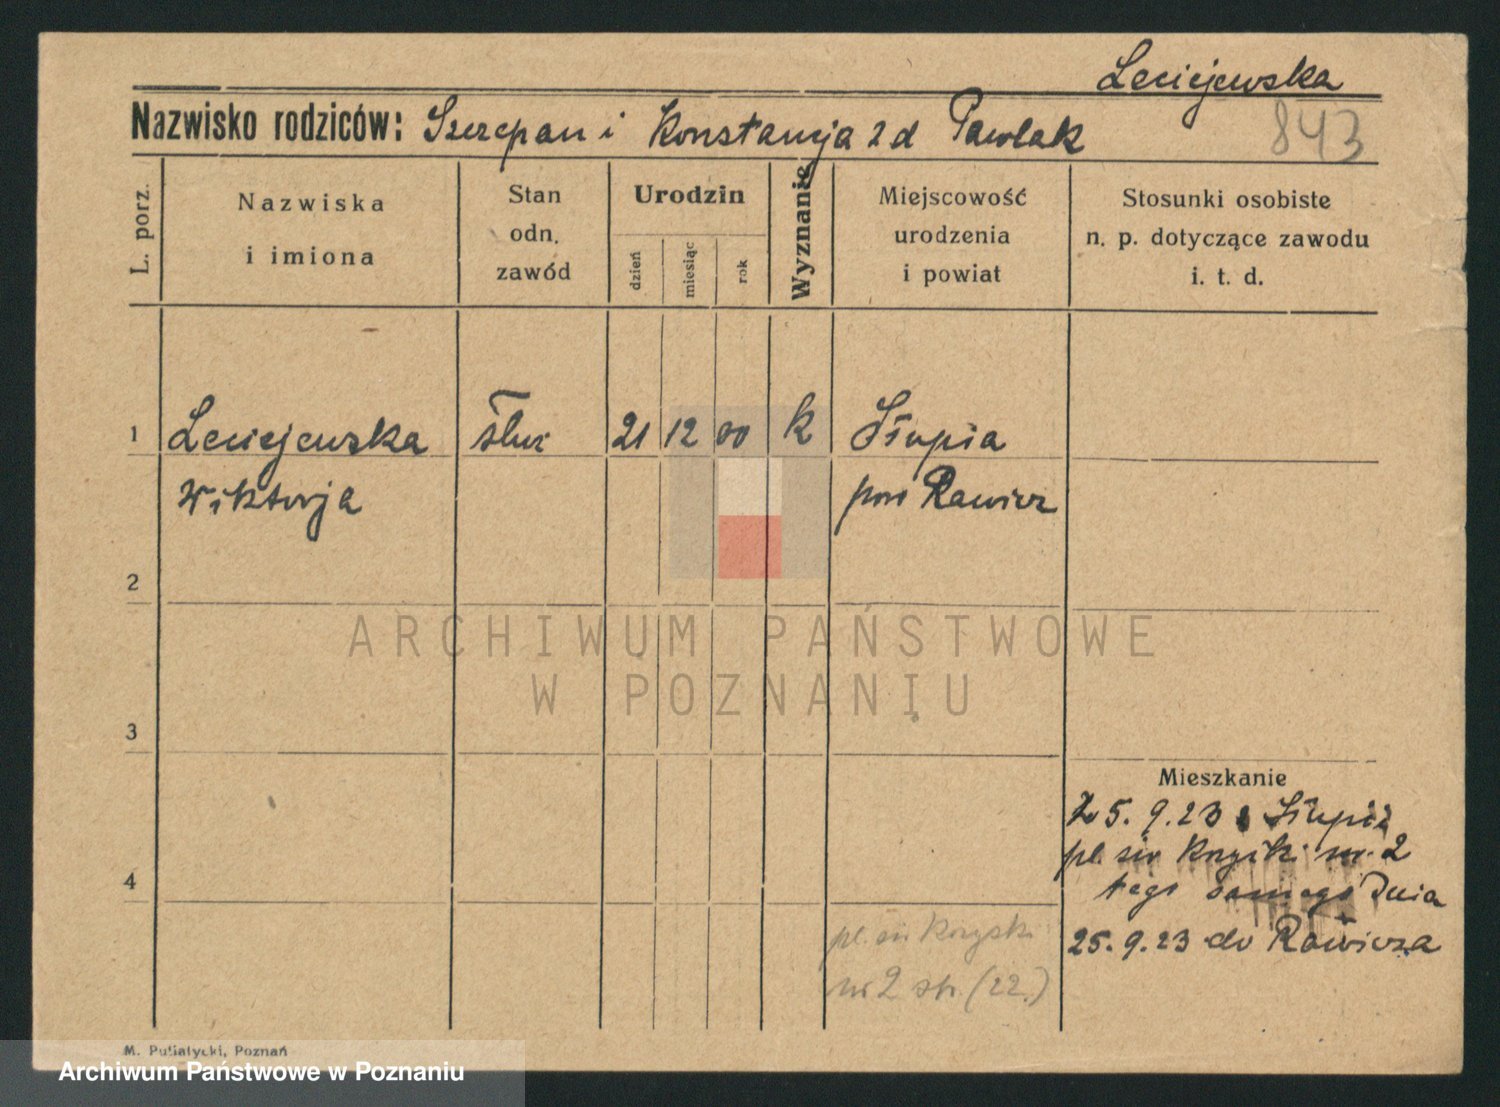 Leciejewska
Nazwisko rodziców: Szczepan i Konstancja z d Pawlak
843
L. porz.
Nazwiska
i imiona
Stan
odn.
zawód
Urodzin
dzień
miesiąc
rok
Wyznanie
Miejscowość
urodzenia
i powiat
Stosunki osobiste
n. p. dotyczące zawodu
i. t. d.
1 Leciejewska służ 21 12 00 k Słupia
Wiktorja pow Rawicz
2
ARCHIWUM PAŃSTWOWE
W POZNANIU
3
Mieszkanie
5.9.23 z Słupia
pl. św nr. 2
4
tego samego Dnia
25.9.23 do Rawicza
pl. św
nr 2 str. (22.)
M. Putiatycki, Poznań
Archiwum Państwowe w Poznaniu